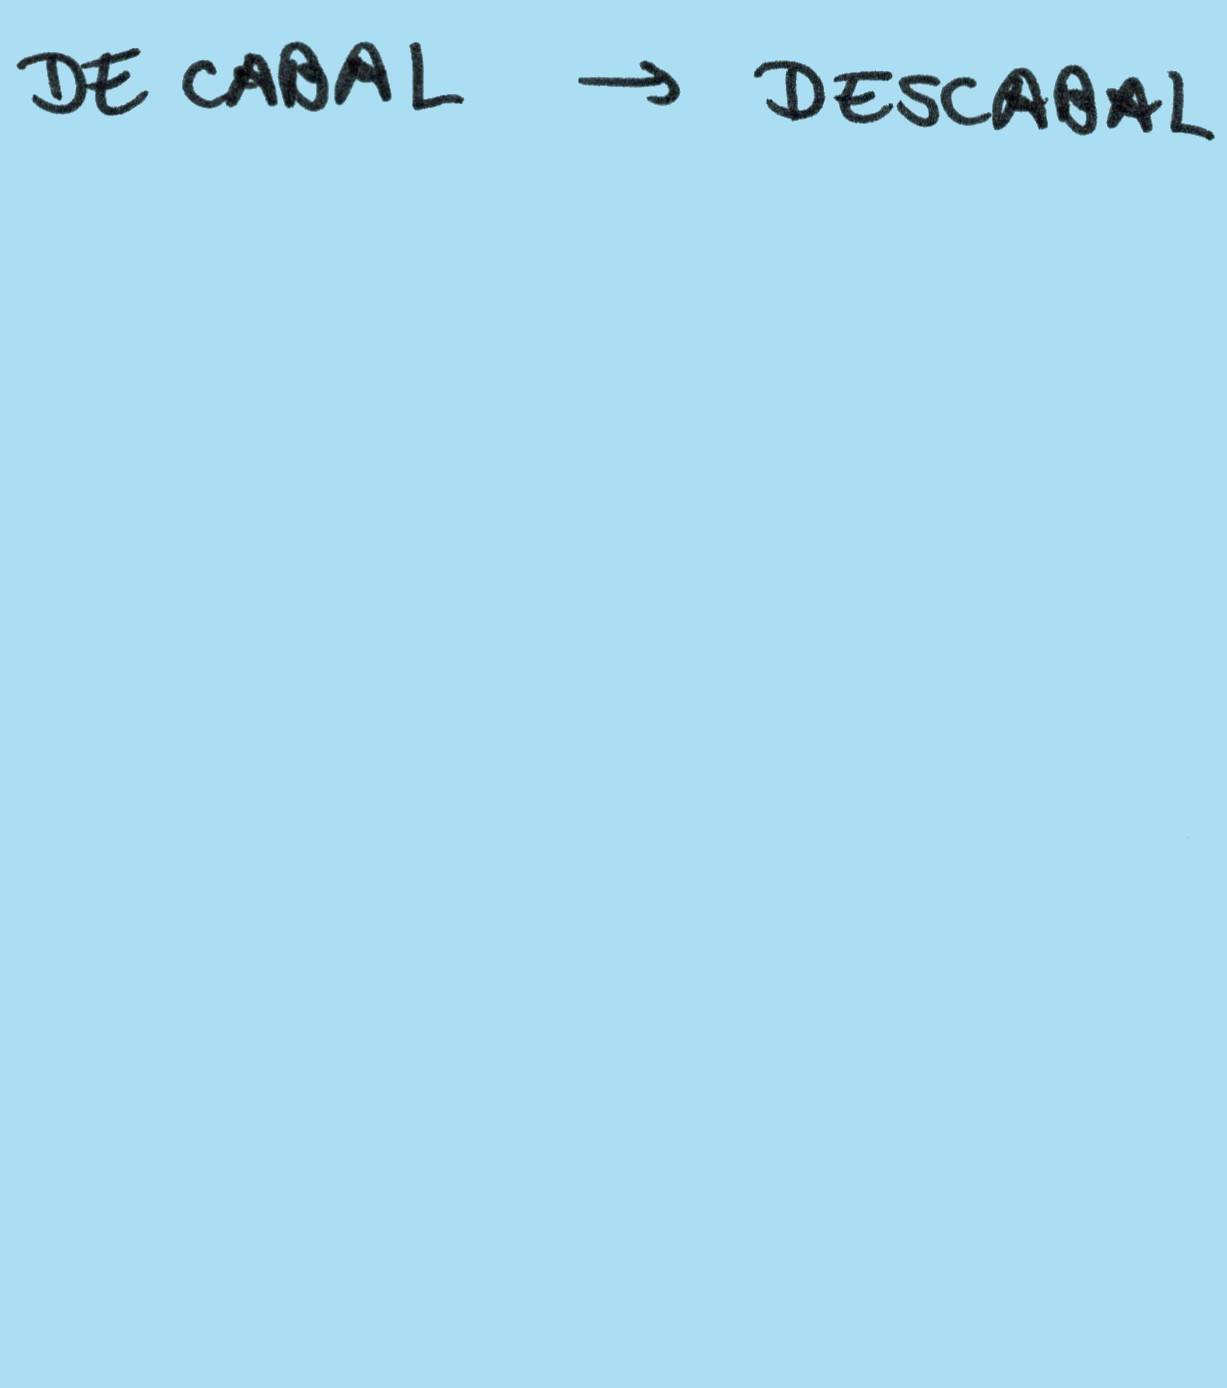 DE CABAL → DESCABAL